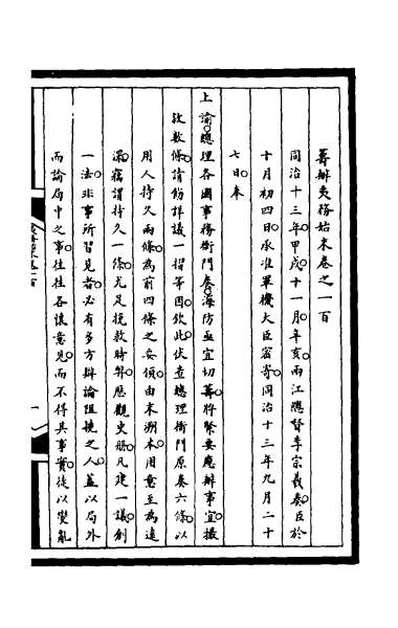 籌辦夷務始末卷之一百
同治十三年甲戌十一月年亥兩江總督李宗羲奏臣於
十月初四日承准軍機大臣密寄同治十三年九月二十
七日奉
上諭總理各國事務衙門奏海防亟宜切籌將緊要應辦事宜撮
敘數條請飭詳議一摺等因欽此伏查總理衙門原奏六條以
用人持久兩條為前四條之要領由末溯本用意至為遠
深竊謂持久一條尤足挽救時弊應觀史冊凡建一議創
一法非事所習見者必有多方辯論阻撓之人蓋以局外
而論局中之事往往各懷意見而不得其事實後以變亂
一